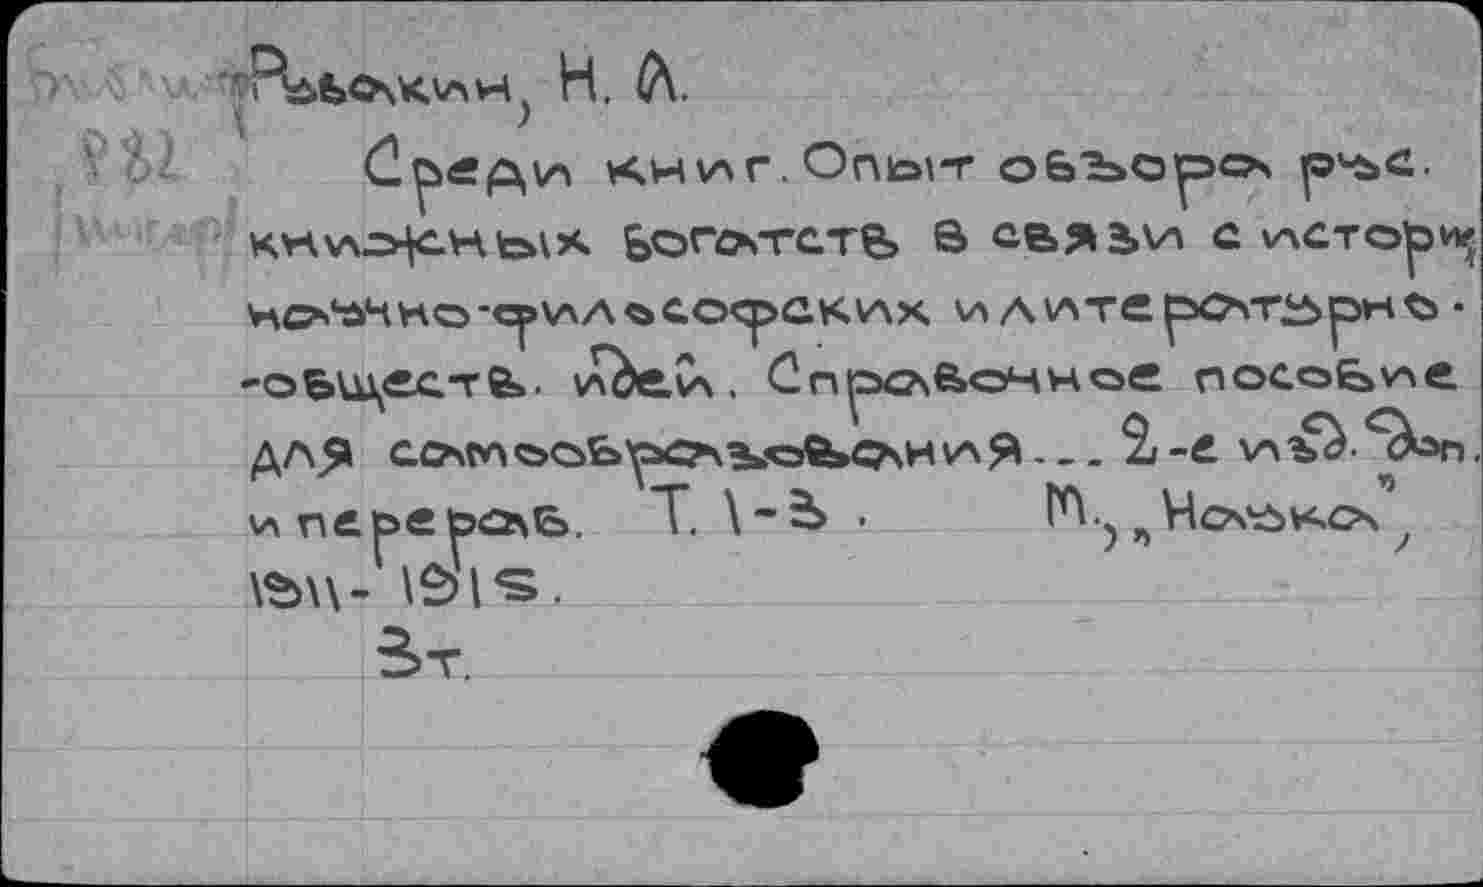 Рубакин, Н. А.
Среди книг. Опыт обзора рус.
книжных богатств в связи с истории
научно-философских и литературно-
-обществ. идей. Справочное пособие
для самообразования... 2-е изд. доп.
и перераб. Т. 1-3. М., „Наука",
1911-1915.
3т.